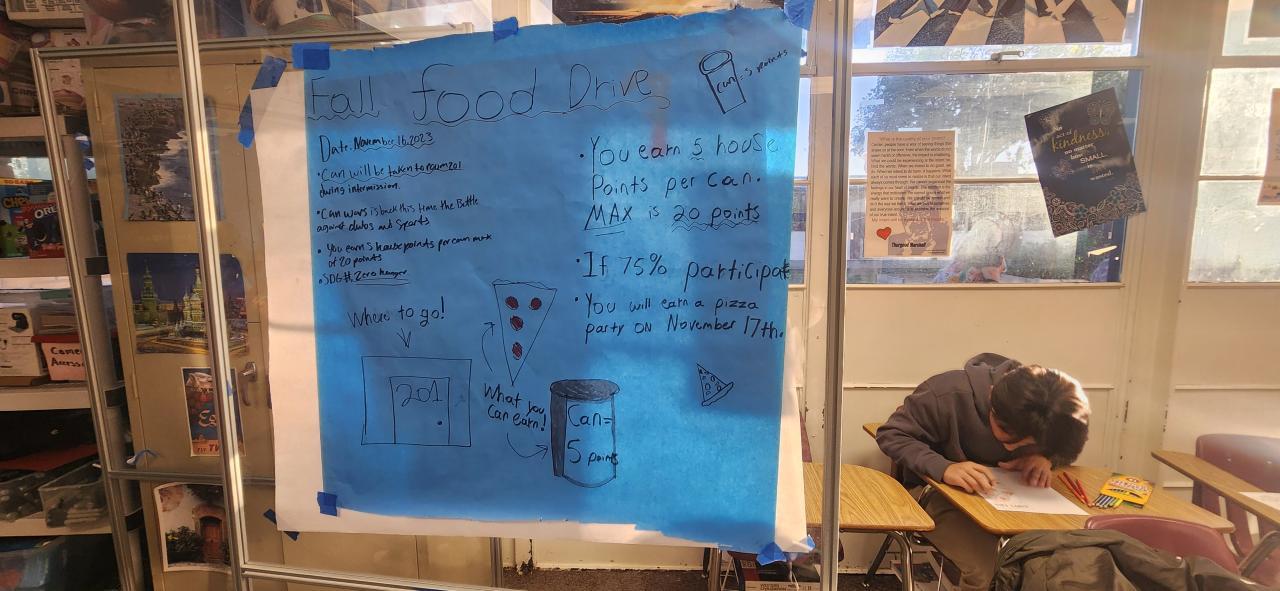 Fall Food Drive
can = 5 points
Date: November 16, 2023
• Can will be taken to room 201
during intermission.
• Can wars is back this time the Battle
against clubs and Sports
• You earn 5 house points per can max
of 20 points
• SDG#: Zero hunger
Where to go!
201
What you
Can earn!
• You earn 5 house
Points per can.
MAX is 20 points
• If 75% participat
• You will earn a pizza
party on November 17th.
Can=
5 points
No
act of
kindness,
no matter
how
SMALL
is
wasted.
Thurgood Marshall